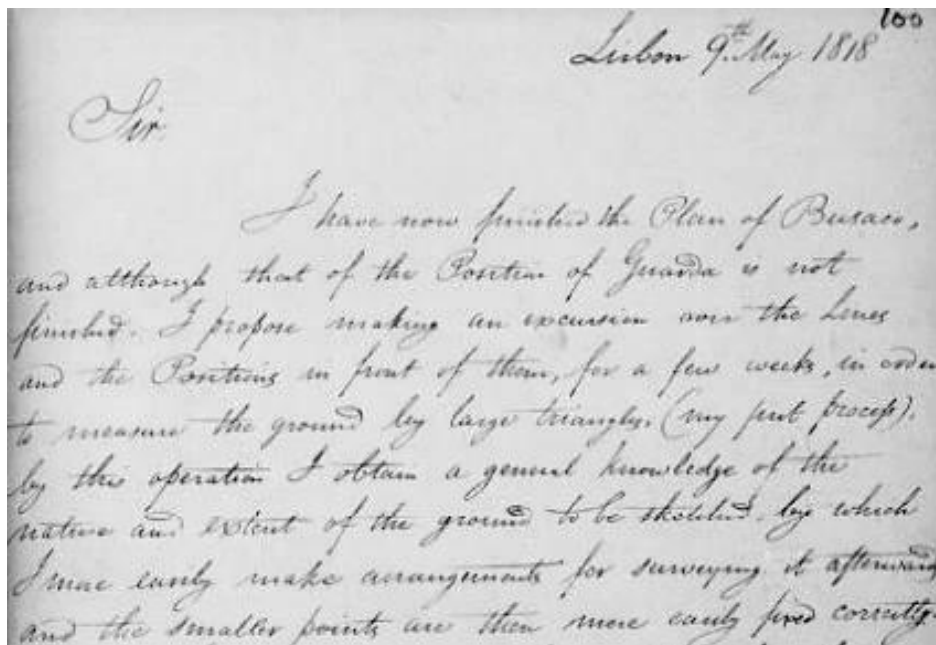 100
Lisbon 9th May 1818
Sir
I have now finished the Plan of Busaco,
and although that of the Position of Guarda is not
finished. I propose making an excursion over the Lines
and the Positions in front of them, for a few weeks, in order
to measure the ground by large triangles, (my first process).
by this operation I obtain a general knowledge of the
nature and extent of the ground to be sketched. by which
I may easily make arrangements for surveying it afterwards
and the smaller points are then more easily fixed correctly.